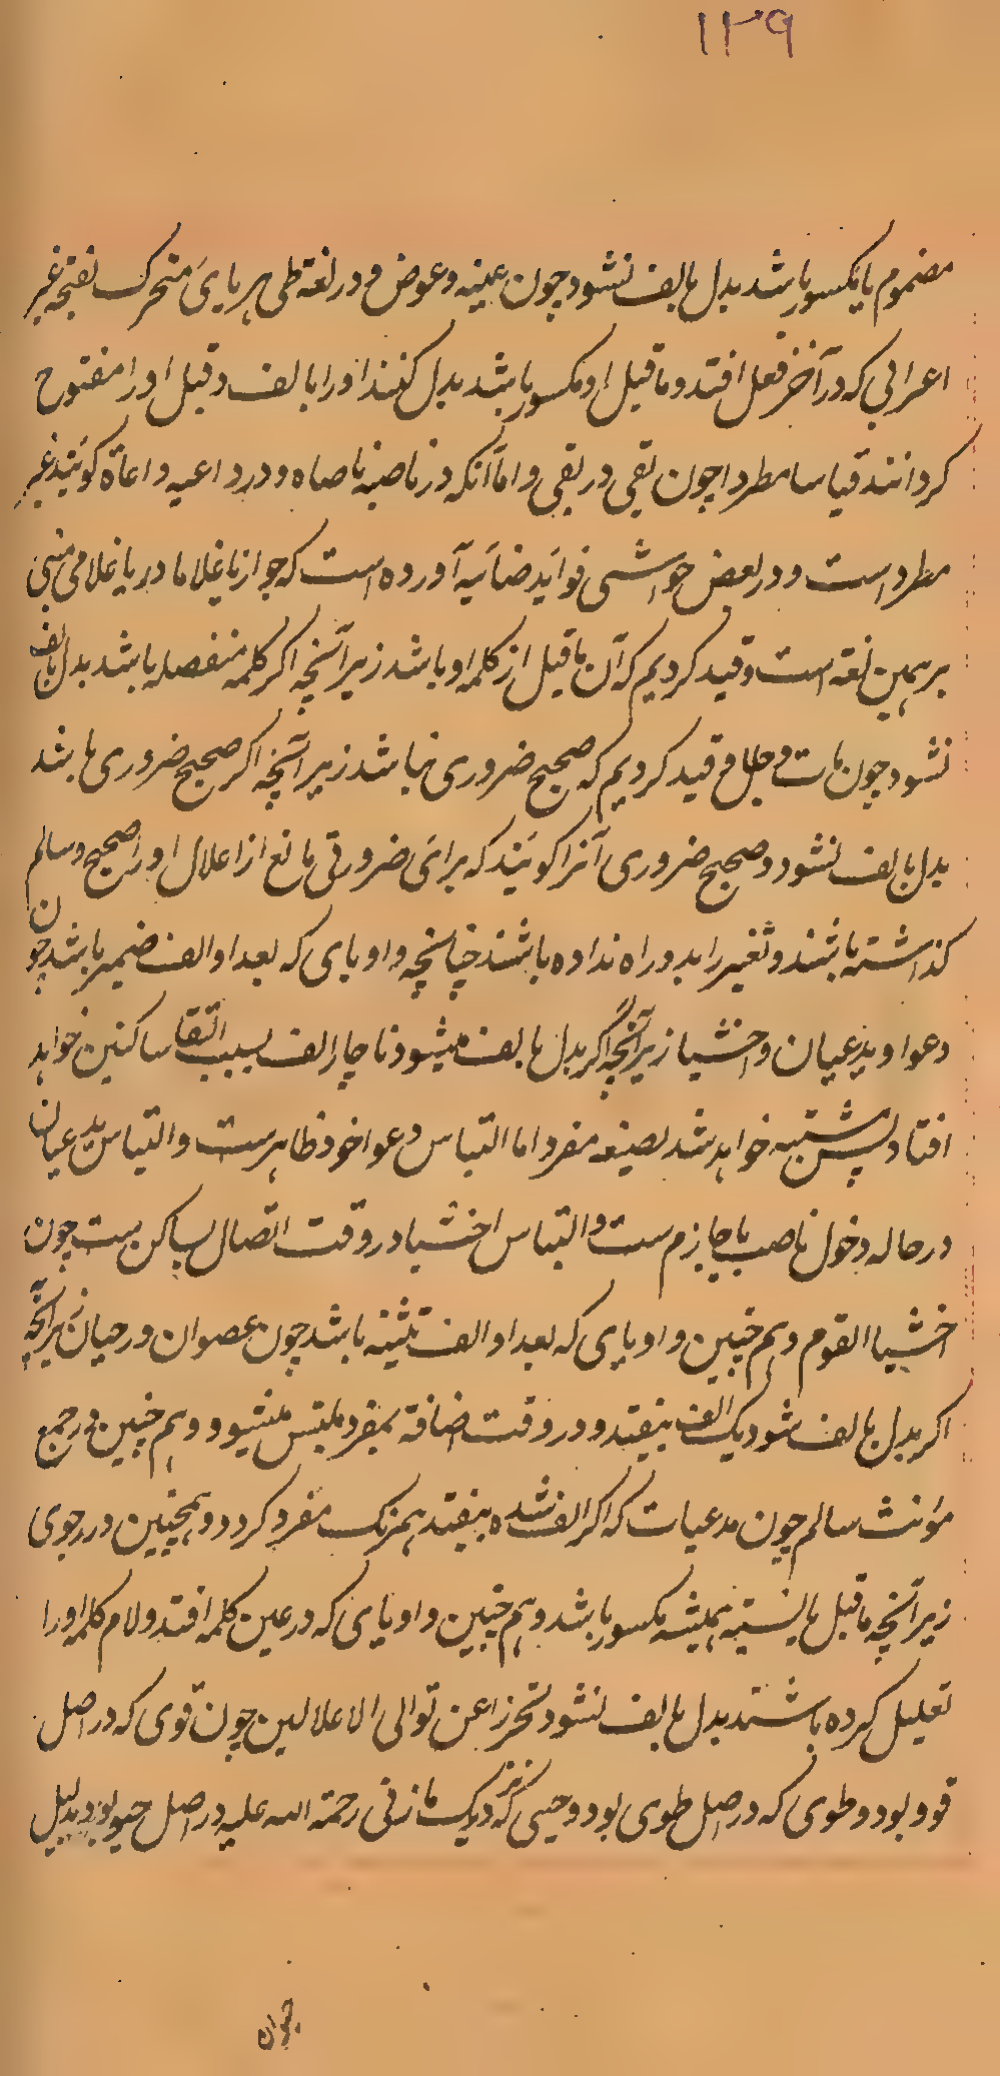 ۱۲۹
مضموم یا مکسور باشد بدل بالف نشود چون عینه و عوض و در لغة طی هر یای متحرک بفتحه غیر
اعرابی که در آخر فعل افتد و ماقبل او مکسور باشد بدل کنند او را بالف و قبل او را مفتوح
گردانند قیاسا مطردا چون بقی در بقی و اما آنکه در ناصیه ناصاه و در داعیه داعاة گویند غیر
مطرد است و در بعض حواشی فواید ضیائیه آورده است که جواز یا غلاما در یا غلامی مبنی
بر همین لغة است و قید کردیم که آن ماقبل از کلمه او باشد زیرا آنچه اگر کلمه منفصله باشد بدل بالف
نشود چون مات و جل و قید کردیم که صحیح ضروری نباشد زیرا آنچه اگر صحیح ضروری باشد
بدل بالف نشود و صحیح ضروری آنرا گویند که برای ضرورتی مانع از اعلال او را صحیح و سالم
گذاشته باشند و تغیر را بدو راه نداده باشند چنانچه واو یای که بعد او الف ضمیر باشد چون
دعوا و یدعیان و اخشیا زیرا آنچه اگر بدل بالف میشود ناچار الف بسبب التقا ساکنین خواهد
افتاد پس مشتبه خواهد شد بصیغه مفرد اما التباس دعوا خود ظاهرست و التباس یدعیان
در حاله دخول ناصب یا جازم ست و التباس اخشیا در وقت اتصال بساکن ست چون
اخشیا القوم و هم چنین واو یای که بعد او الف تثنیه باشد چون عصوان و رحیان زیرا آنچه
اگر بدل بالف شود یک الف بیفتد و در وقت اضافة بمفرد ملتبس میشود و هم چنین در جمع
مؤنث سالم چون مدعیات که اگر الف شده بیفتد همرنگ مفرد گردد و همچنین در رجوی
زیرا آنچه ماقبل یا نسبتیه همیشه مکسور باشد و هم چنین واو یای که در عین کلمه افتد و لام کلمه او را
تعلیل کرده باشند بدل بالف نشود تحرزا عن توالی الاعلالین چون قوی که در اصل
قوو بود و طوی که در اصل طوی بود و حیی که نزدیک مازنی رحمة الله علیه در اصل حیو بود بدلیل